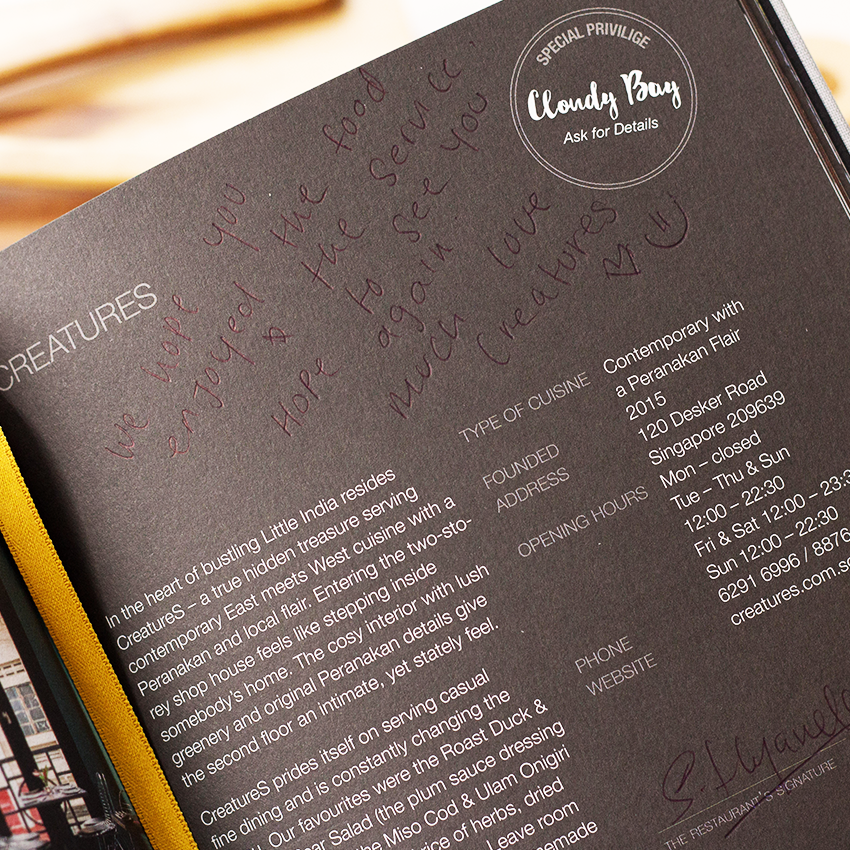 SPECIAL PRIVILIGE
Cloudy Bay
Ask for Details
We hope you
enjoyed the food
& the service.
Hope to see you
again.
Much love
Creatures
CREATURES
TYPE OF CUISINE
Contemporary with
a Peranakan Flair
FOUNDED
2015
ADDRESS
120 Desker Road
Singapore 209639
OPENING HOURS
Mon – closed
Tue – Thu & Sun
12:00 – 22:30
Fri & Sat 12:00 – 23:3
Sun 12:00 – 22:30
PHONE
6291 6996 / 8876
WEBSITE
creatures.com.sg
In the heart of bustling Little India resides
CreatureS – a true hidden treasure serving
contemporary East meets West cuisine with a
Peranakan and local flair. Entering the two-sto-
rey shop house feels like stepping inside
somebody's home. The cosy interior with lush
greenery and original Peranakan details give
the second floor an intimate, yet stately feel.
CreatureS prides itself on serving casual
fine dining and is constantly changing the
. Our favourites were the Roast Duck &
Salad (the plum sauce dressing
the Miso Cod & Ulam Onigiri
rice of herbs, dried
Leave room
THE RESTAURANT'S SIGNATURE